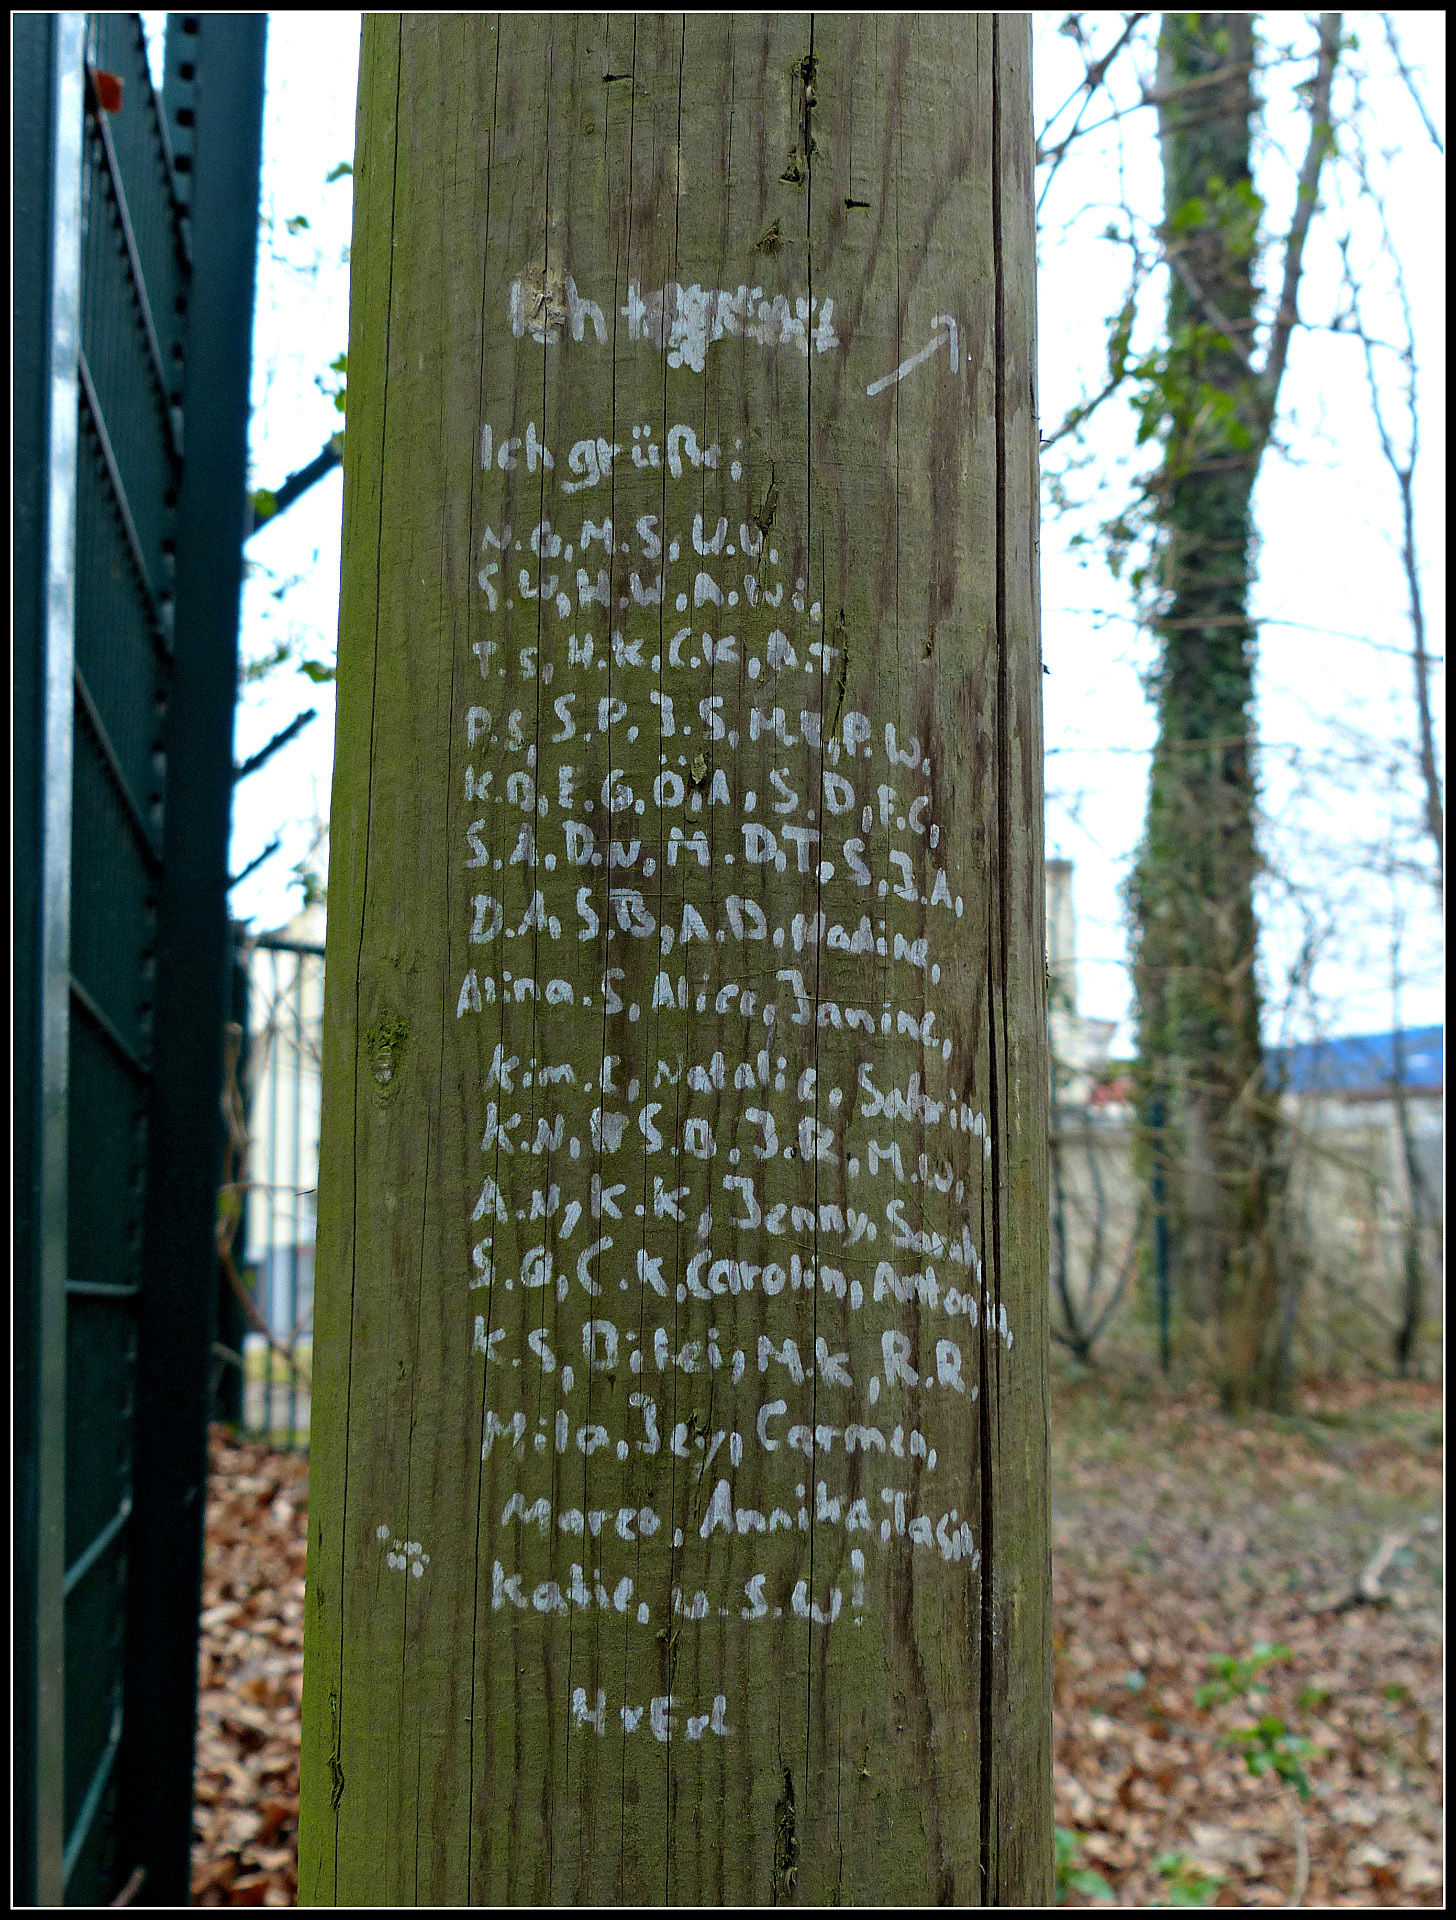 Ich
Ich grüße:
N.G, M.S, U.U.
S.W, H.W, A.Wi,
T.S, H.K, C.K, A.T
P.S, S.P, J.S, M.U, P.W,
K.D, E.G, Ö.A, S.D, F.C,
S.A, D.N, M.D, T.S, J.A,
D.A, S.B, A.D, Nadine,
Alina.S, Alice, Janine,
Kim.E, Natalie, Sabrina,
K.N, S.D, J.R, M.W,
A.N, K.K, Jenny, Sarah,
S.G, C.K, Carolin, Antonia,
K.S, M.K, R.R,
Mila, Jey, Carmen,
Marco, Annika,
Katie, u.s.w!